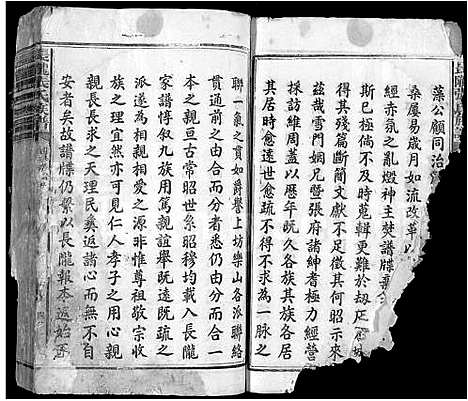 藻公顧同治
桑屢易歲月如流改革以
經赤氛之亂燬神主焚譜牒
斯已極倘不及時蒐輯更難於劫
得其殘篇斷簡文獻不足徵其何昭示來
茲哉雪門嫻兄暨張府諸紳耆極力經營
維持進周蓋以歷年既久各族其族各居
其居時愈遠世愈疏不得不求為一脉之
聯一氣之貫如爵譽上坊樂山各派聯絡
貫通前之由合而分者悉仍由分而合一
本之親亘古常昭世系昭穆均載入長隴
家譜惇叙九族用篤親誼舉既遠既疏之
派遂為相親相愛之源非惟尊祖敬宗收
族之理宜然亦可見仁人孝子之用心也
親親長長求之天理民彝返諸心而無不
安者矣故譜牒仍繫以長隴報本返始